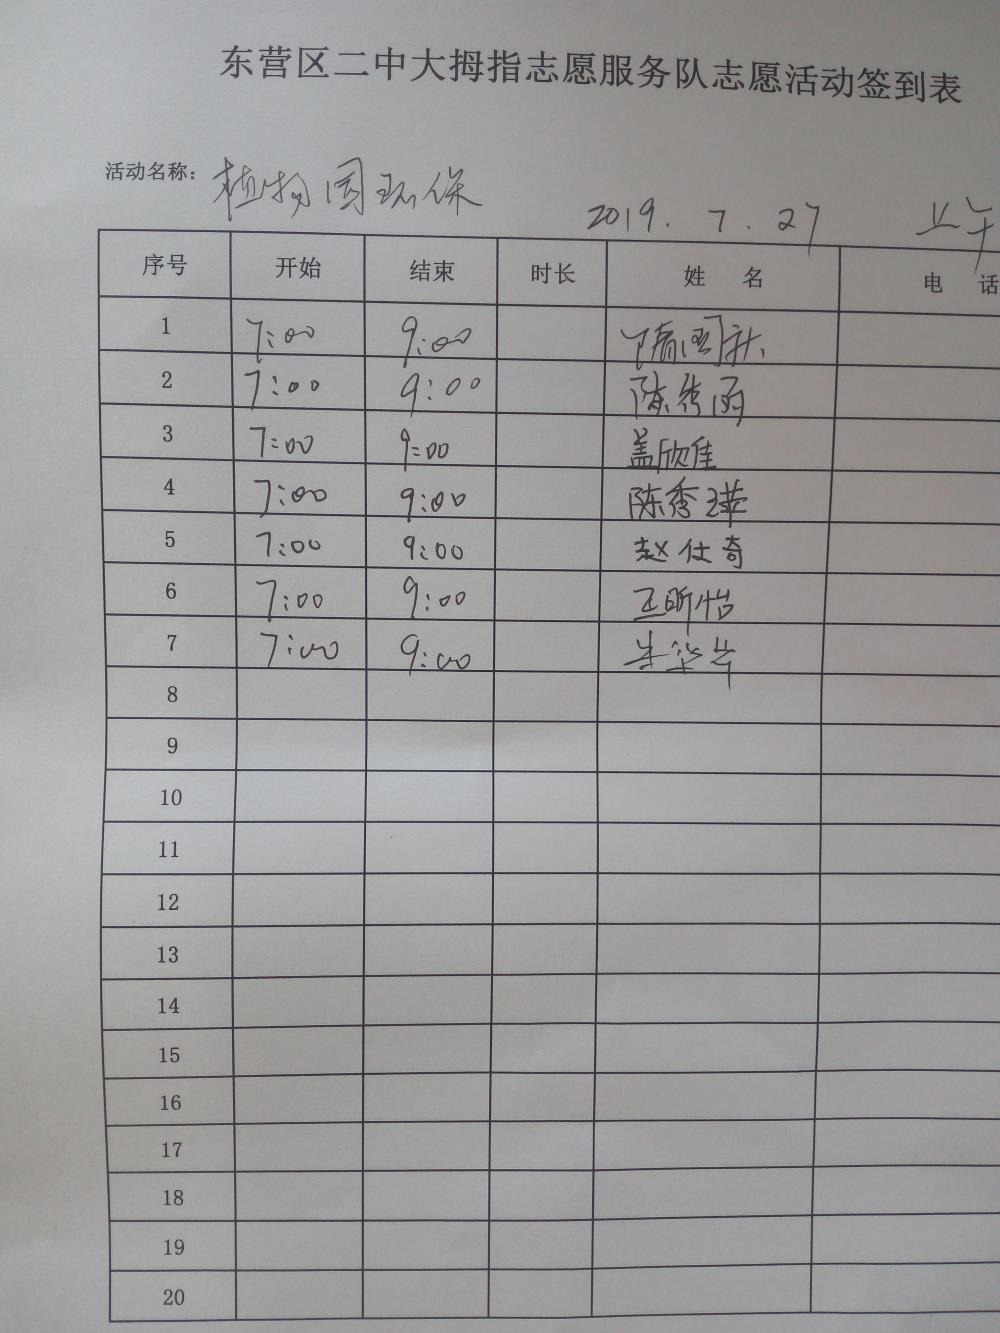 东营区二中大拇指志愿服务队志愿活动签到表
活动名称：植物园环保 2019.7.27 上午
序号 开始 结束 时长 姓名 电话
1 7:00 9:00
2 7:00 9:00 陈秀函
3 7:00 9:00 盖欣佳
4 7:00 9:00 陈秀
5 7:00 9:00 赵仕奇
6 7:00 9:00 王昕怡
7 7:00 9:00
8
9
10
11
12
13
14
15
16
17
18
19
20